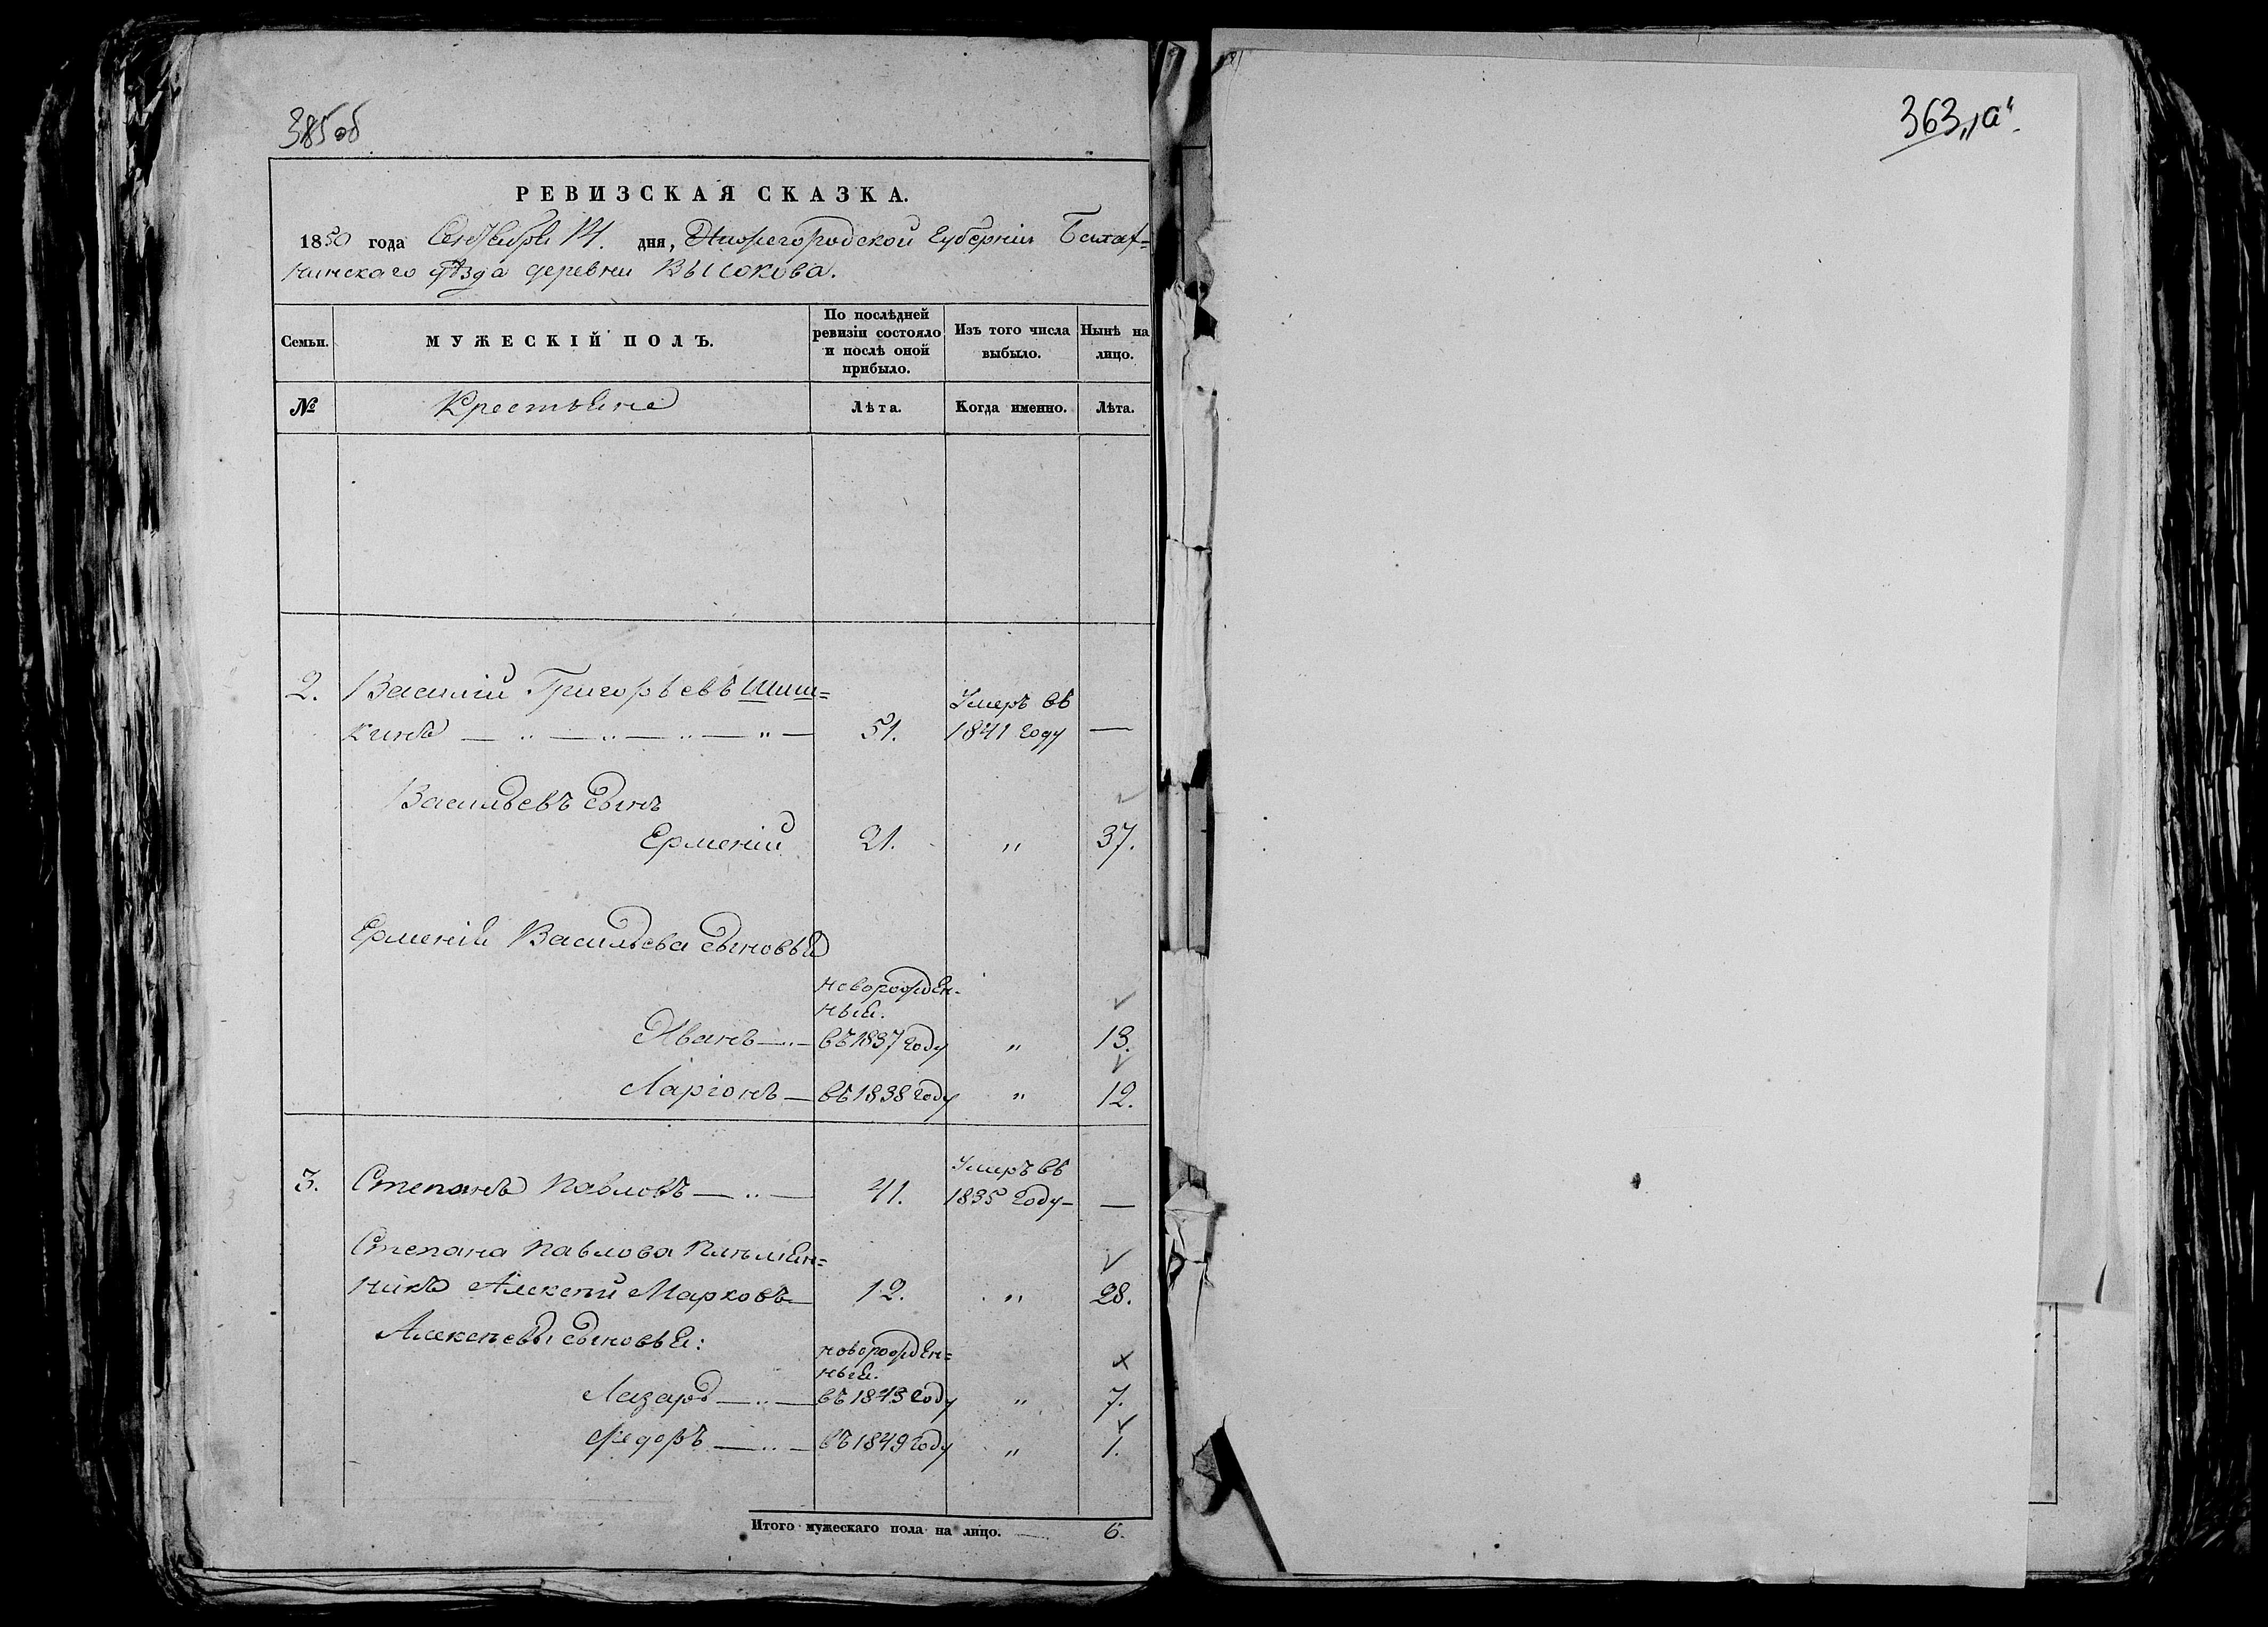 385об
363 „а“
РЕВИЗСКАЯ СКАЗКА.
1850 года Сентября 14. дня, Нижегородской губерніи Балах=
нинскаго уѣзда деревни Высокова.
Семьи. МУЖЕСКІЙ ПОЛЪ. По послѣдней ревизіи состояло и послѣ оной прибыло. Изъ того числа выбыло. Нынѣ на лицо.
№ Крестьяне Лѣта. Когда именно. Лѣта.
2. Василій Григорьевъ Шиш=
Умеръ въ
кинъ — „ — „ — „ — „ — 51. 1841 году —
Васильевъ сынъ
Ерменій 21. „ 37.
Ерменія Васильева сыновья
новорожден-
ныя.
Иванъ — „ — въ 1837 году „ 13.
Ларіонъ — въ 1838 году „ 12.
Умеръ въ
3. Степанъ Павловъ — „ — 41. 1835 году — —
Степана Павлова племян=
никъ Алексѣй Марковъ — 12. „ 28.
Алексѣевы сыновья:
новорожден=
ныя.
Лазарь — „ — въ 1843 году „ 7.
Федоръ — „ — въ 1849 году „ 1.
Итого мужескаго пола на лицо. 6.